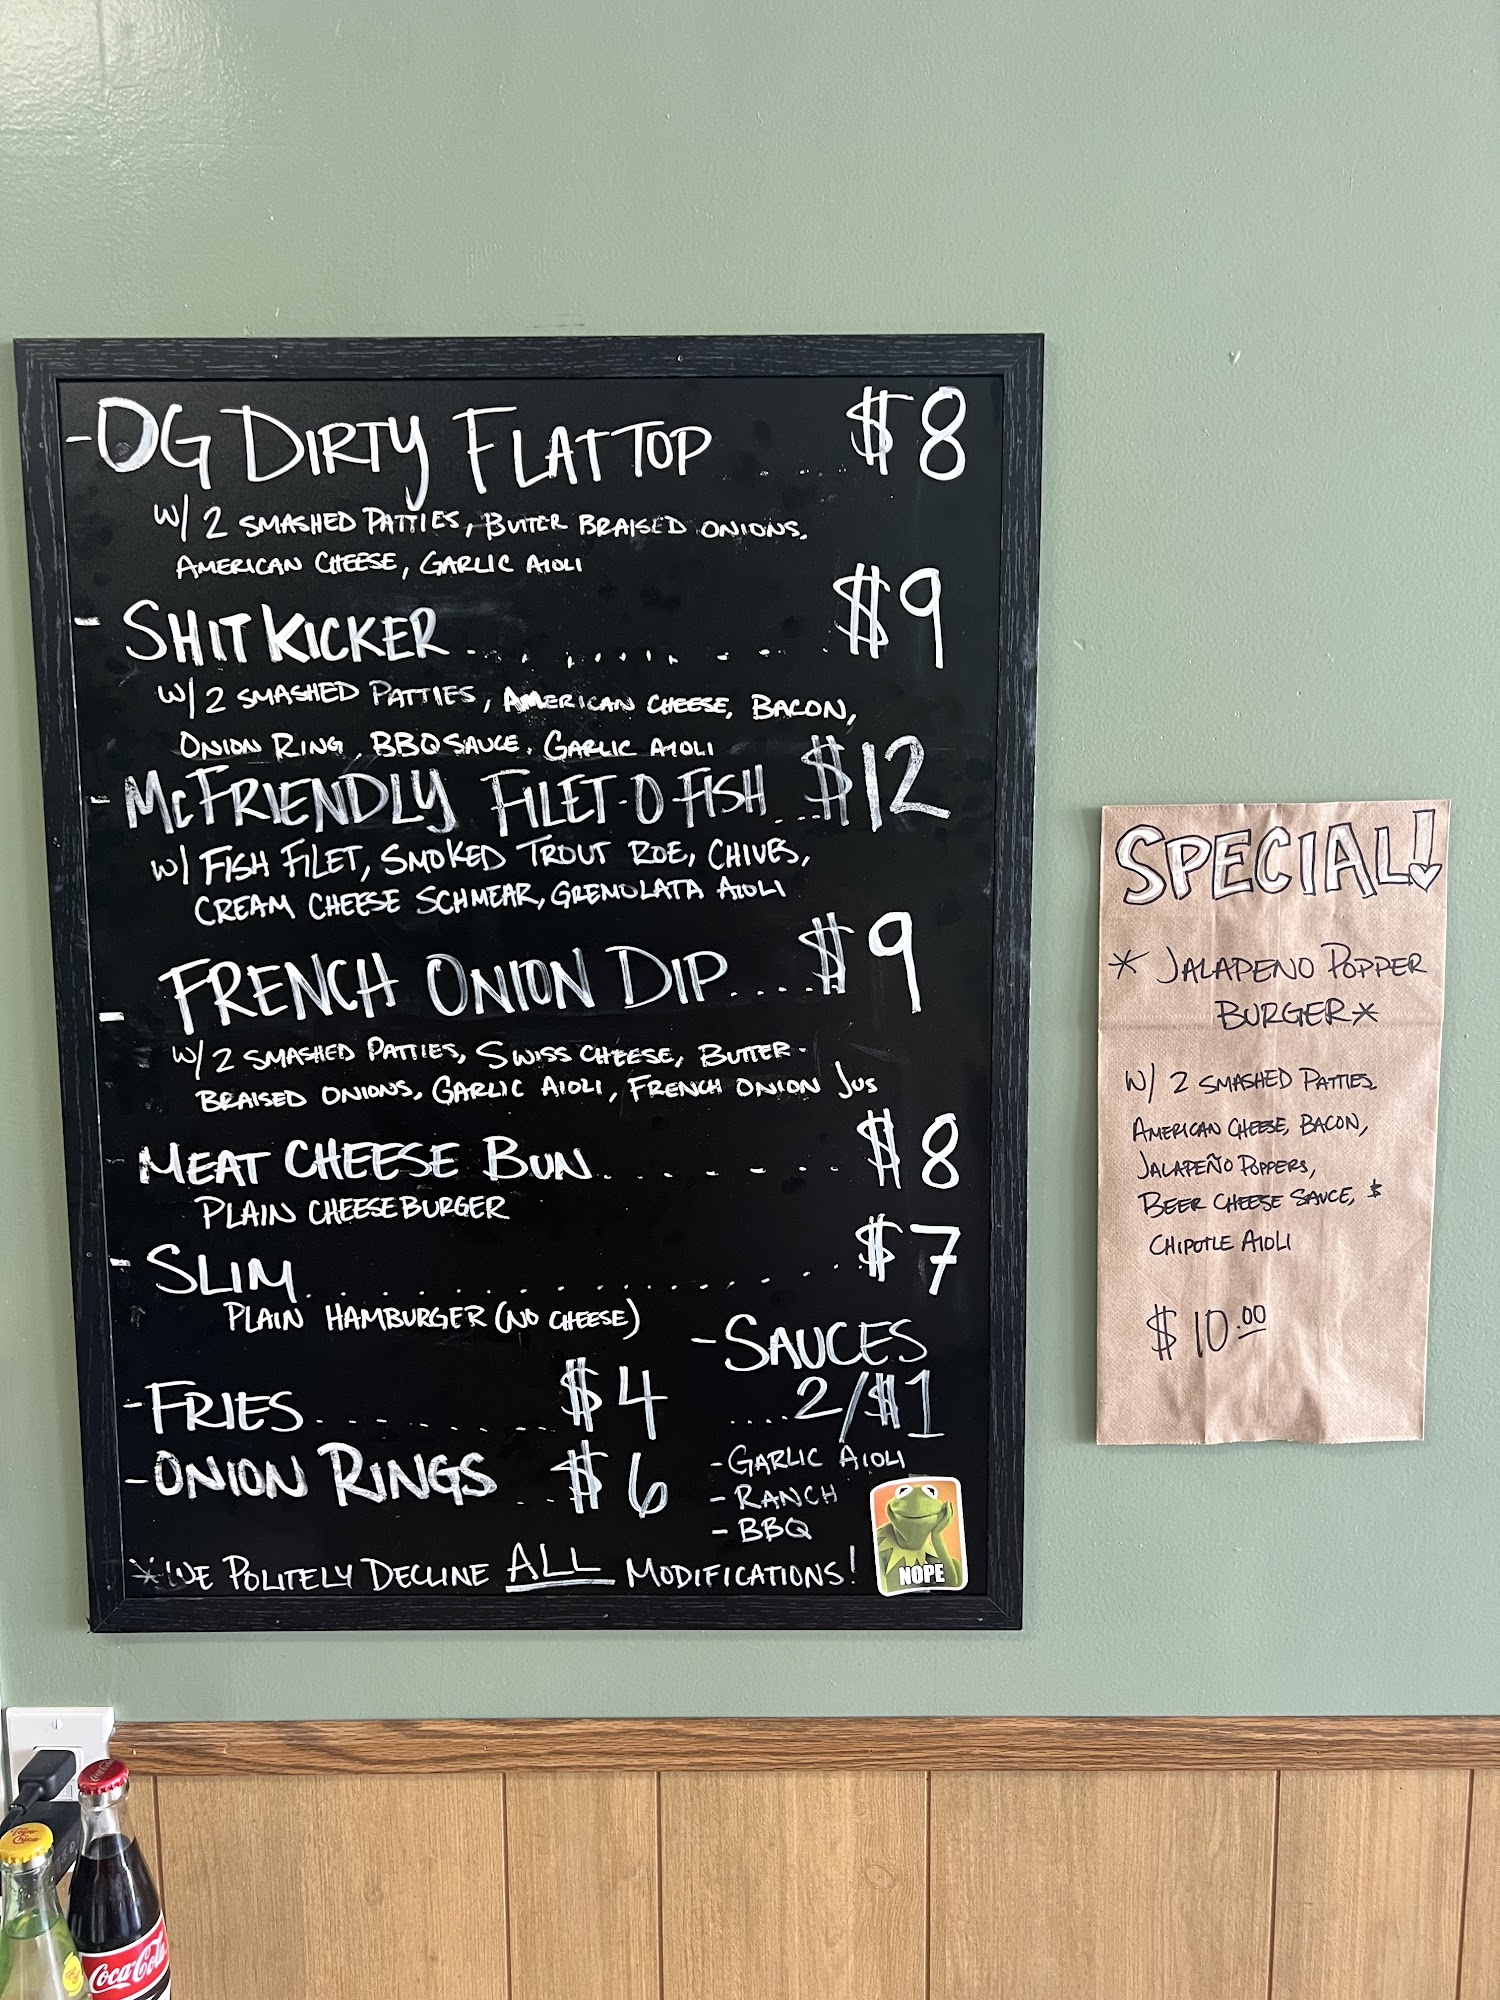 - OG DIRTY FLAT TOP .... $8
W/ 2 SMASHED PATTIES, BUTTER BRAISED ONIONS,
AMERICAN CHEESE, GARLIC AIOLI
- SHIT KICKER .......... $9
W/ 2 SMASHED PATTIES, AMERICAN CHEESE, BACON,
ONION RING, BBQ SAUCE, GARLIC AIOLI
- MCFRIENDLY FILET-O FISH ... $12
W/ FISH FILET, SMOKED TROUT ROE, CHIVES,
CREAM CHEESE SCHMEAR, GREMOLATA AIOLI
- FRENCH ONION DIP .... $9
W/ 2 SMASHED PATTIES, SWISS CHEESE, BUTTER-
BRAISED ONIONS, GARLIC AIOLI, FRENCH ONION JUS
- MEAT CHEESE BUN ....... $8
PLAIN CHEESEBURGER
- SLIM ................ $7
PLAIN HAMBURGER (NO CHEESE)
- FRIES .......... $4
- ONION RINGS ... $6
- SAUCES
.... 2/$1
- GARLIC AIOLI
- RANCH
- BBQ
* WE POLITELY DECLINE ALL MODIFICATIONS!
NOPE
SPECIAL!
* JALAPENO POPPER
BURGER *
W/ 2 SMASHED PATTIES,
AMERICAN CHEESE, BACON,
JALAPEÑO POPPERS,
BEER CHEESE SAUCE, &
CHIPOTLE AIOLI
$10.00
Coca-Cola
Topo Chico
Coca-Cola